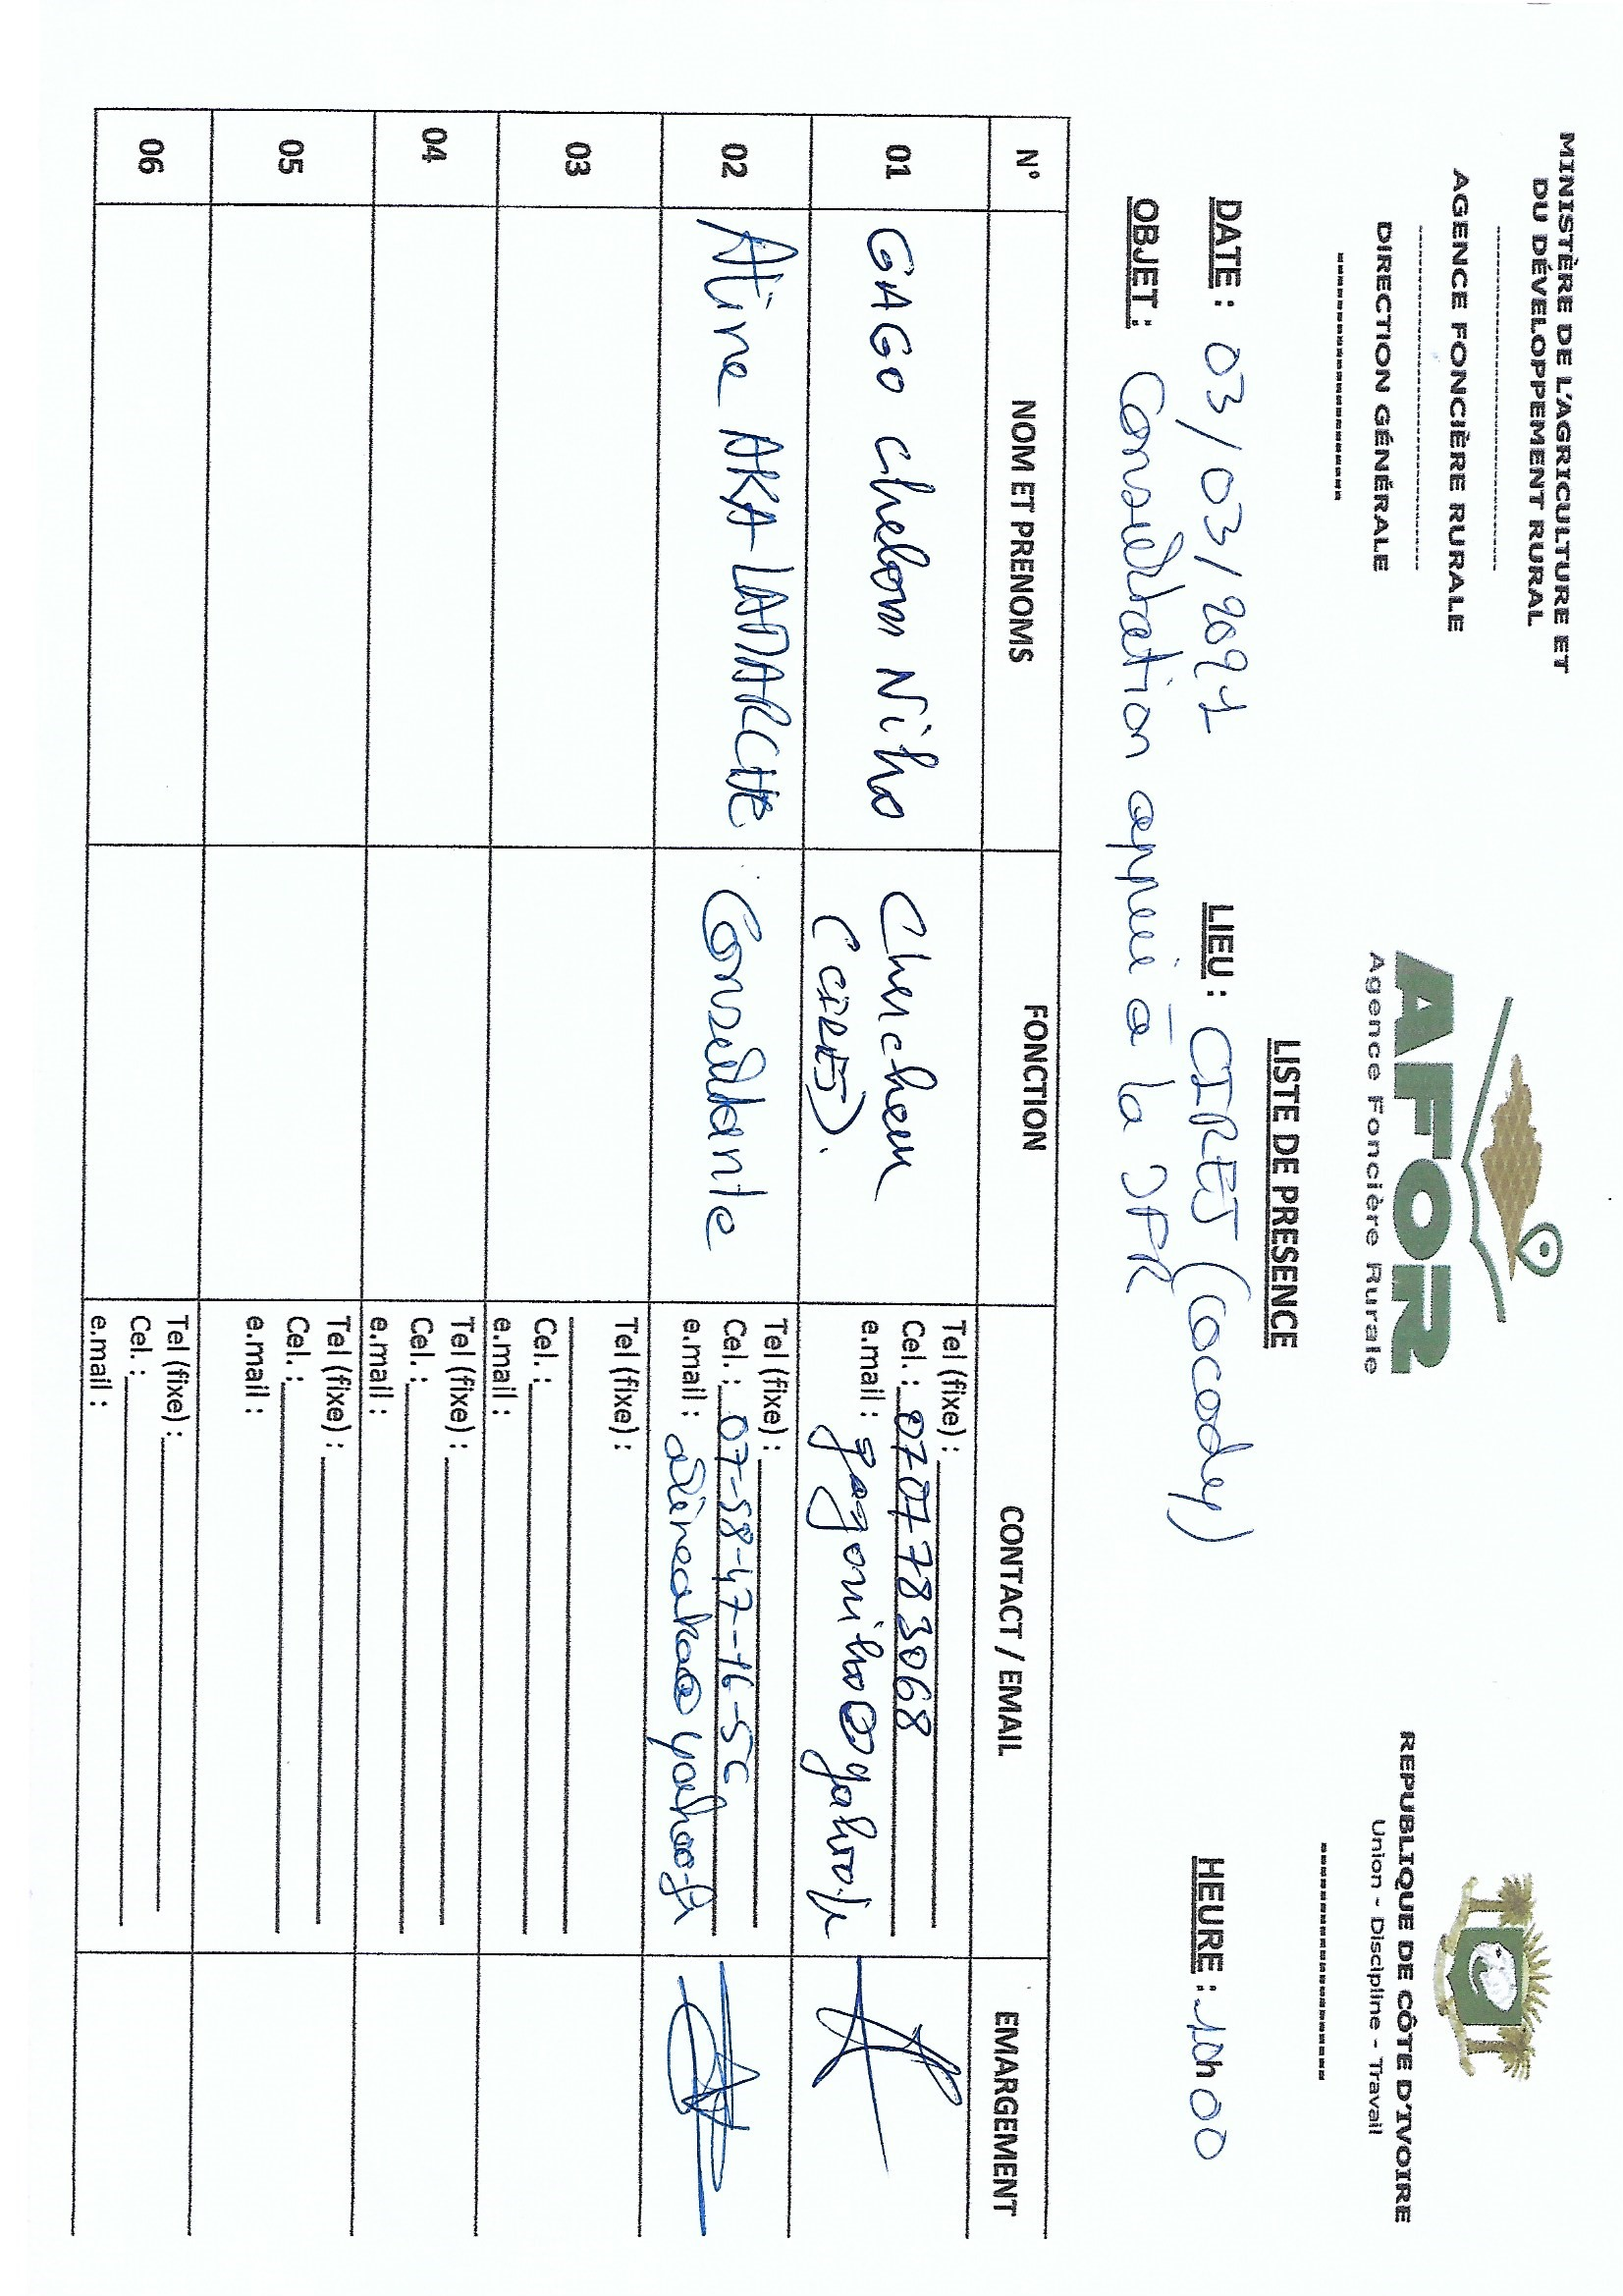 MINISTÈRE DE L'AGRICULTURE ET
DU DÉVELOPPEMENT RURAL
AGENCE FONCIÈRE RURALE
DIRECTION GÉNÉRALE
AFOR
Agence Foncière Rurale
REPUBLIQUE DE CÔTE D'IVOIRE
Union - Discipline - Travail
LISTE DE PRESENCE
DATE : 03/03/2021 LIEU : CIRES (Cocody) HEURE : 10h00
OBJET : Consultation appui à la
N° NOM ET PRENOMS FONCTION CONTACT / EMAIL EMARGEMENT
01 GAGO Niho (CIRES). Tel (fixe) :
Cel. : 0707783068
e.mail :
02 Aline AKA-LAMARCHE Consultante Tel (fixe) :
Cel. : 07-58-47-16-56
e.mail :
03 Tel (fixe) :
Cel. :
e.mail :
04 Tel (fixe) :
Cel. :
e.mail :
05 Tel (fixe) :
Cel. :
e.mail :
06 Tel (fixe) :
Cel. :
e.mail :